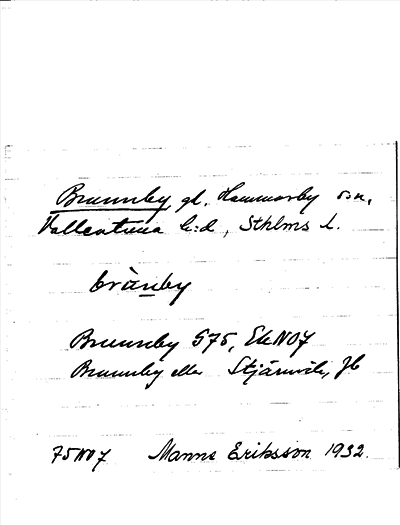 Brunnby, gd. Hammarby sn,
Vallentuna h:d, Sthlms l.
brùnby
Brunnby G75, EkNO7
Brunnby eller Stjärnvik, Jb
75NO7 Manne Eriksson 1932.